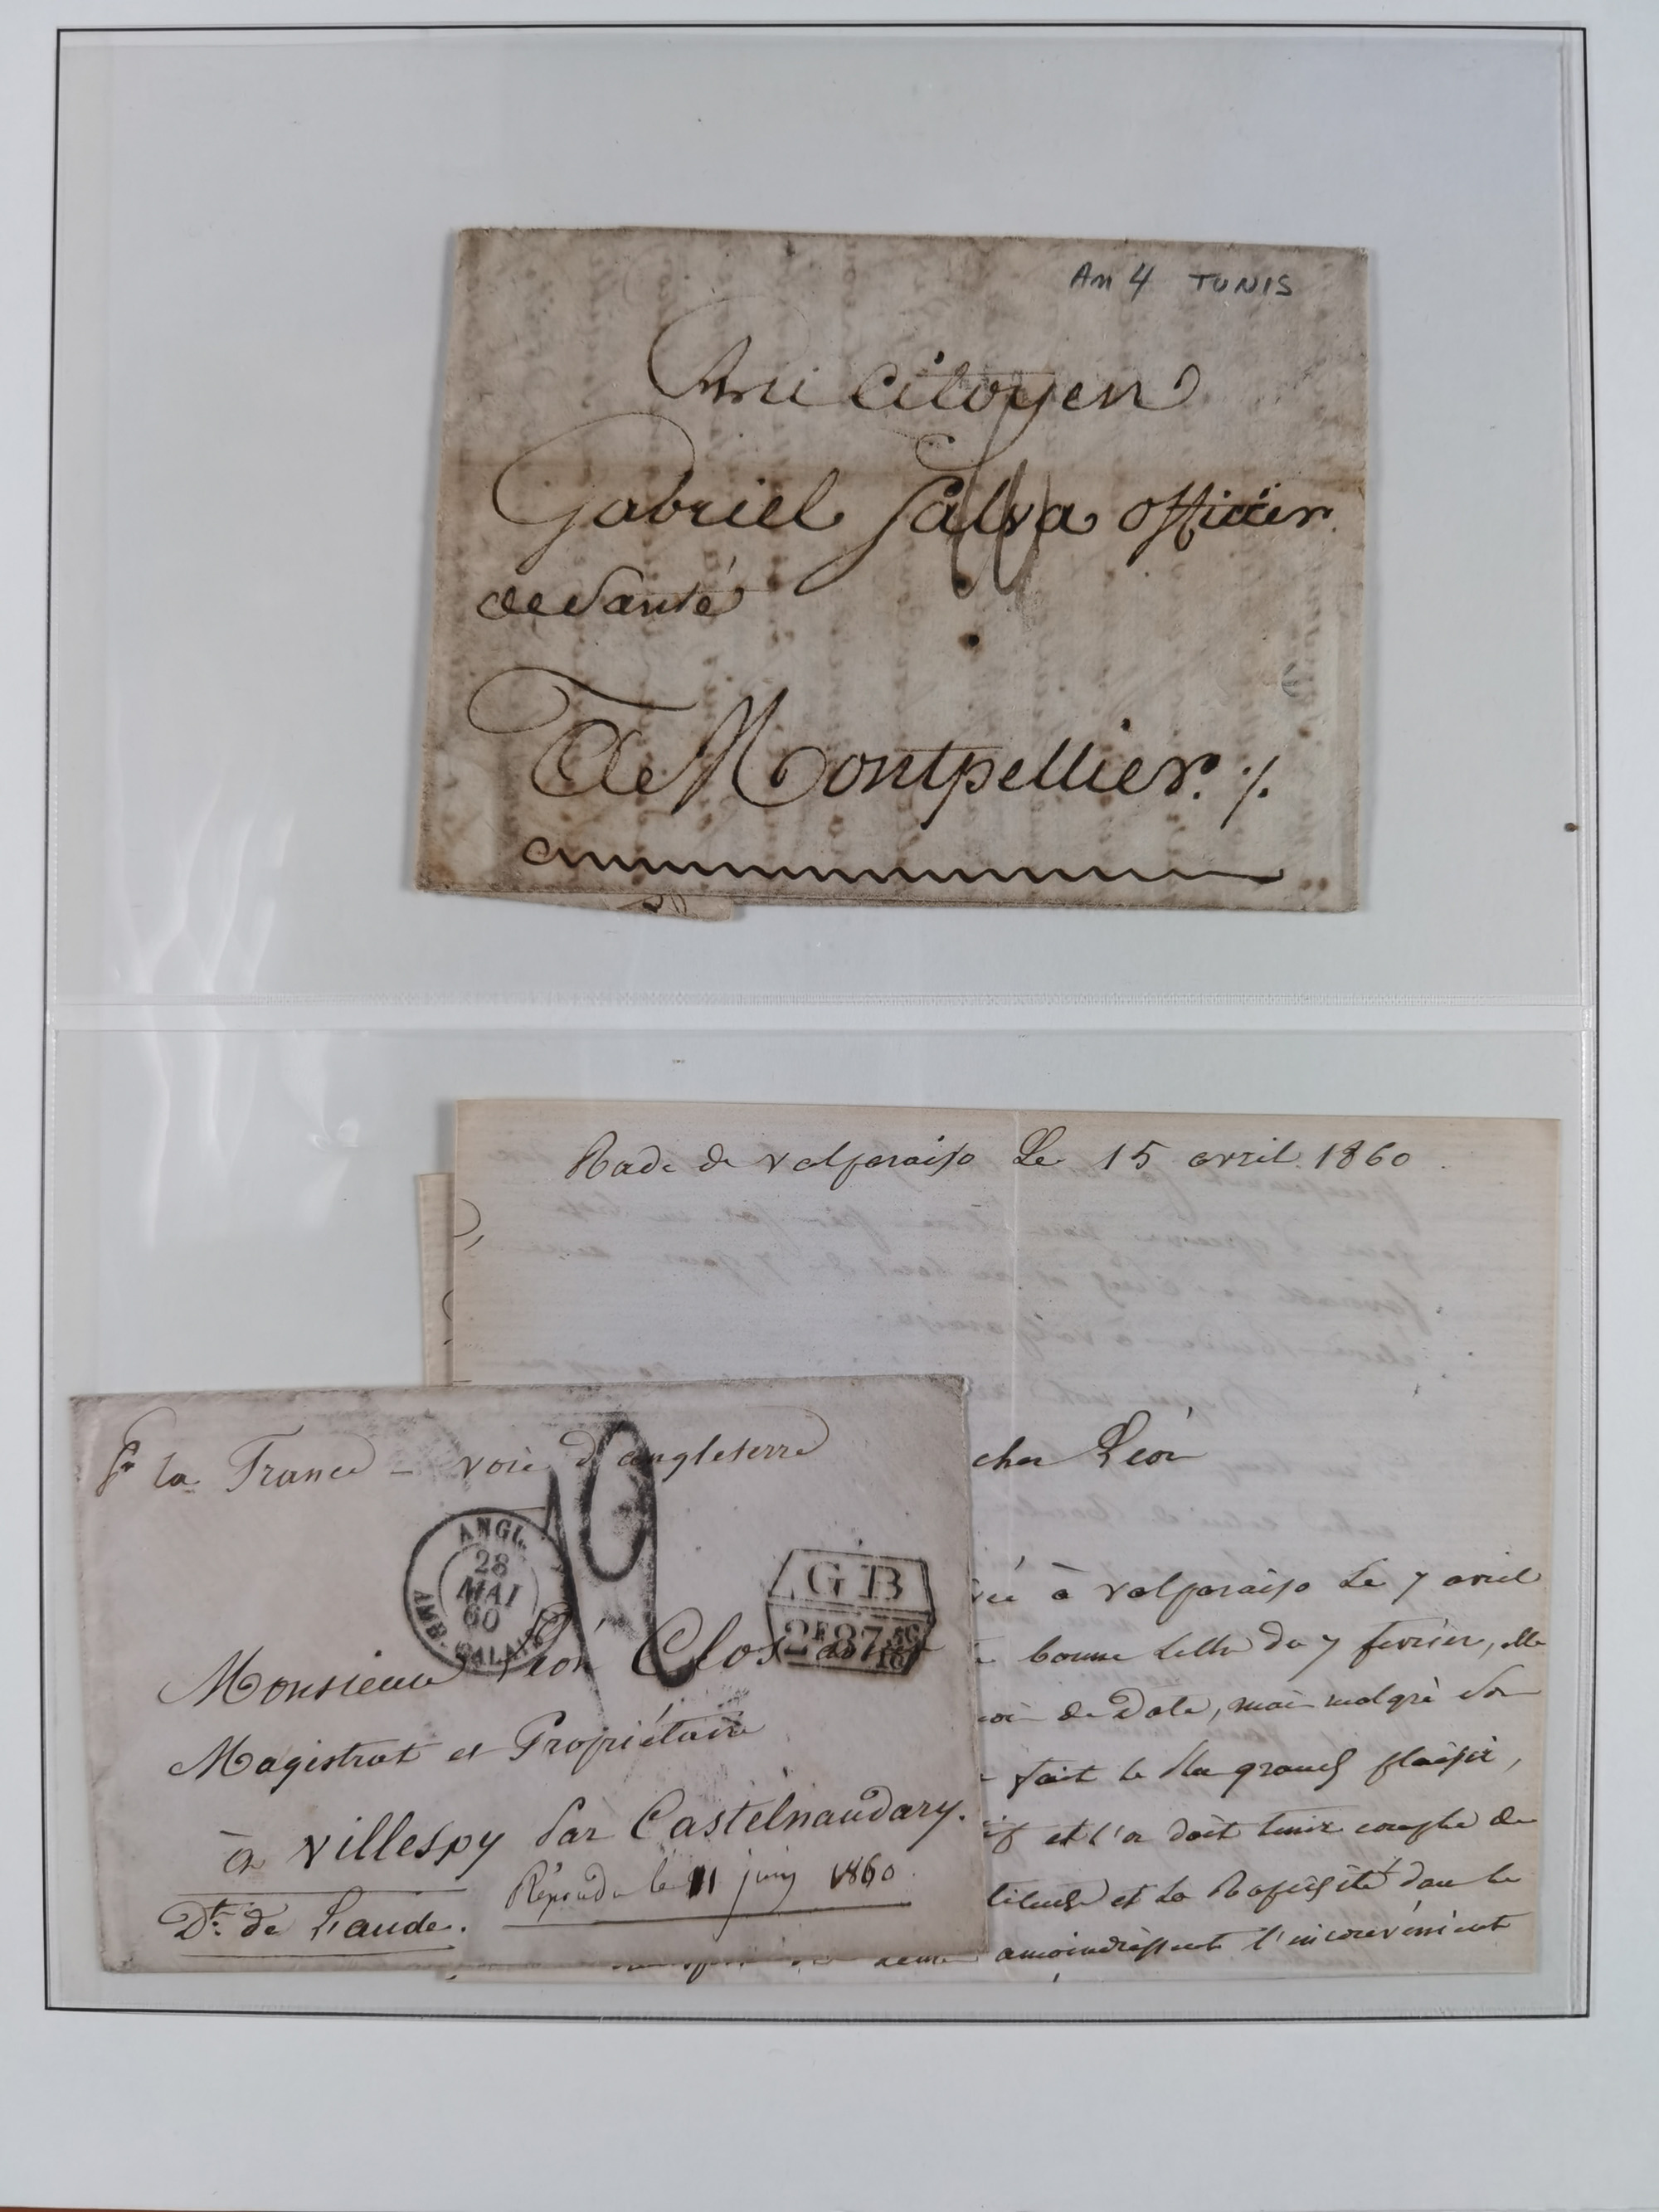 An 4 TUNIS
Au Citoyen
Gabriel Salva officier
de Santé
De Montpellier. ./.
Rade de valparaiso Le 15 avril 1860
cher Léon
à valparaiso le 7 avril
bonne lettre du 7 fevrier, elle
de Dole, mais malgré son
fait le plus grand plaisir,
et l'on doit tenir compte de
et la Rapidité dans le
amoindrissent l'inconvénient
pr la France - voie d'angleterre
ANGL.
28
MAI
60
AMB. CALAIS
GB
2F87 5c
10
Monsieur Léon Clos
Magistrat et Propriétaire
à villespy par Castelnaudary.
Répondu le 11 juin 1860
Dt. de L'aude.